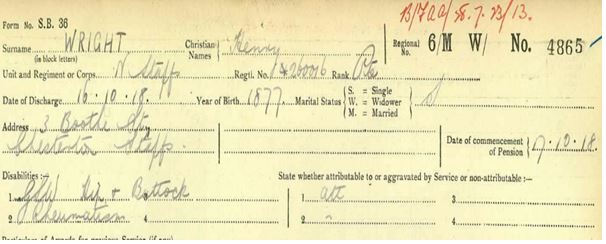 B/FAA/28.7.23/13.
Form No. S.B. 36
Surname WRIGHT (in block letters) Christian Names Henry Regional No. 6/M W/ No. 4865
Unit and Regiment or Corps. N Staffs Regtl. No. Rank Pte
Date of Discharge 16.10.18. Year of Birth 1877. Marital Status S. = Single W. = Widower M. = Married S
Address 3 Boothe St
Chesterton Staffs. Date of commencement of Pension 17.10.18.
Disabilities :— State whether attributable to or aggravated by Service or non-attributable :—
1 GSW Hip & Buttock 3 1 att 3
2 Rheumatism 4 2 " 4
Particulars of Awards for previous Service (if any)